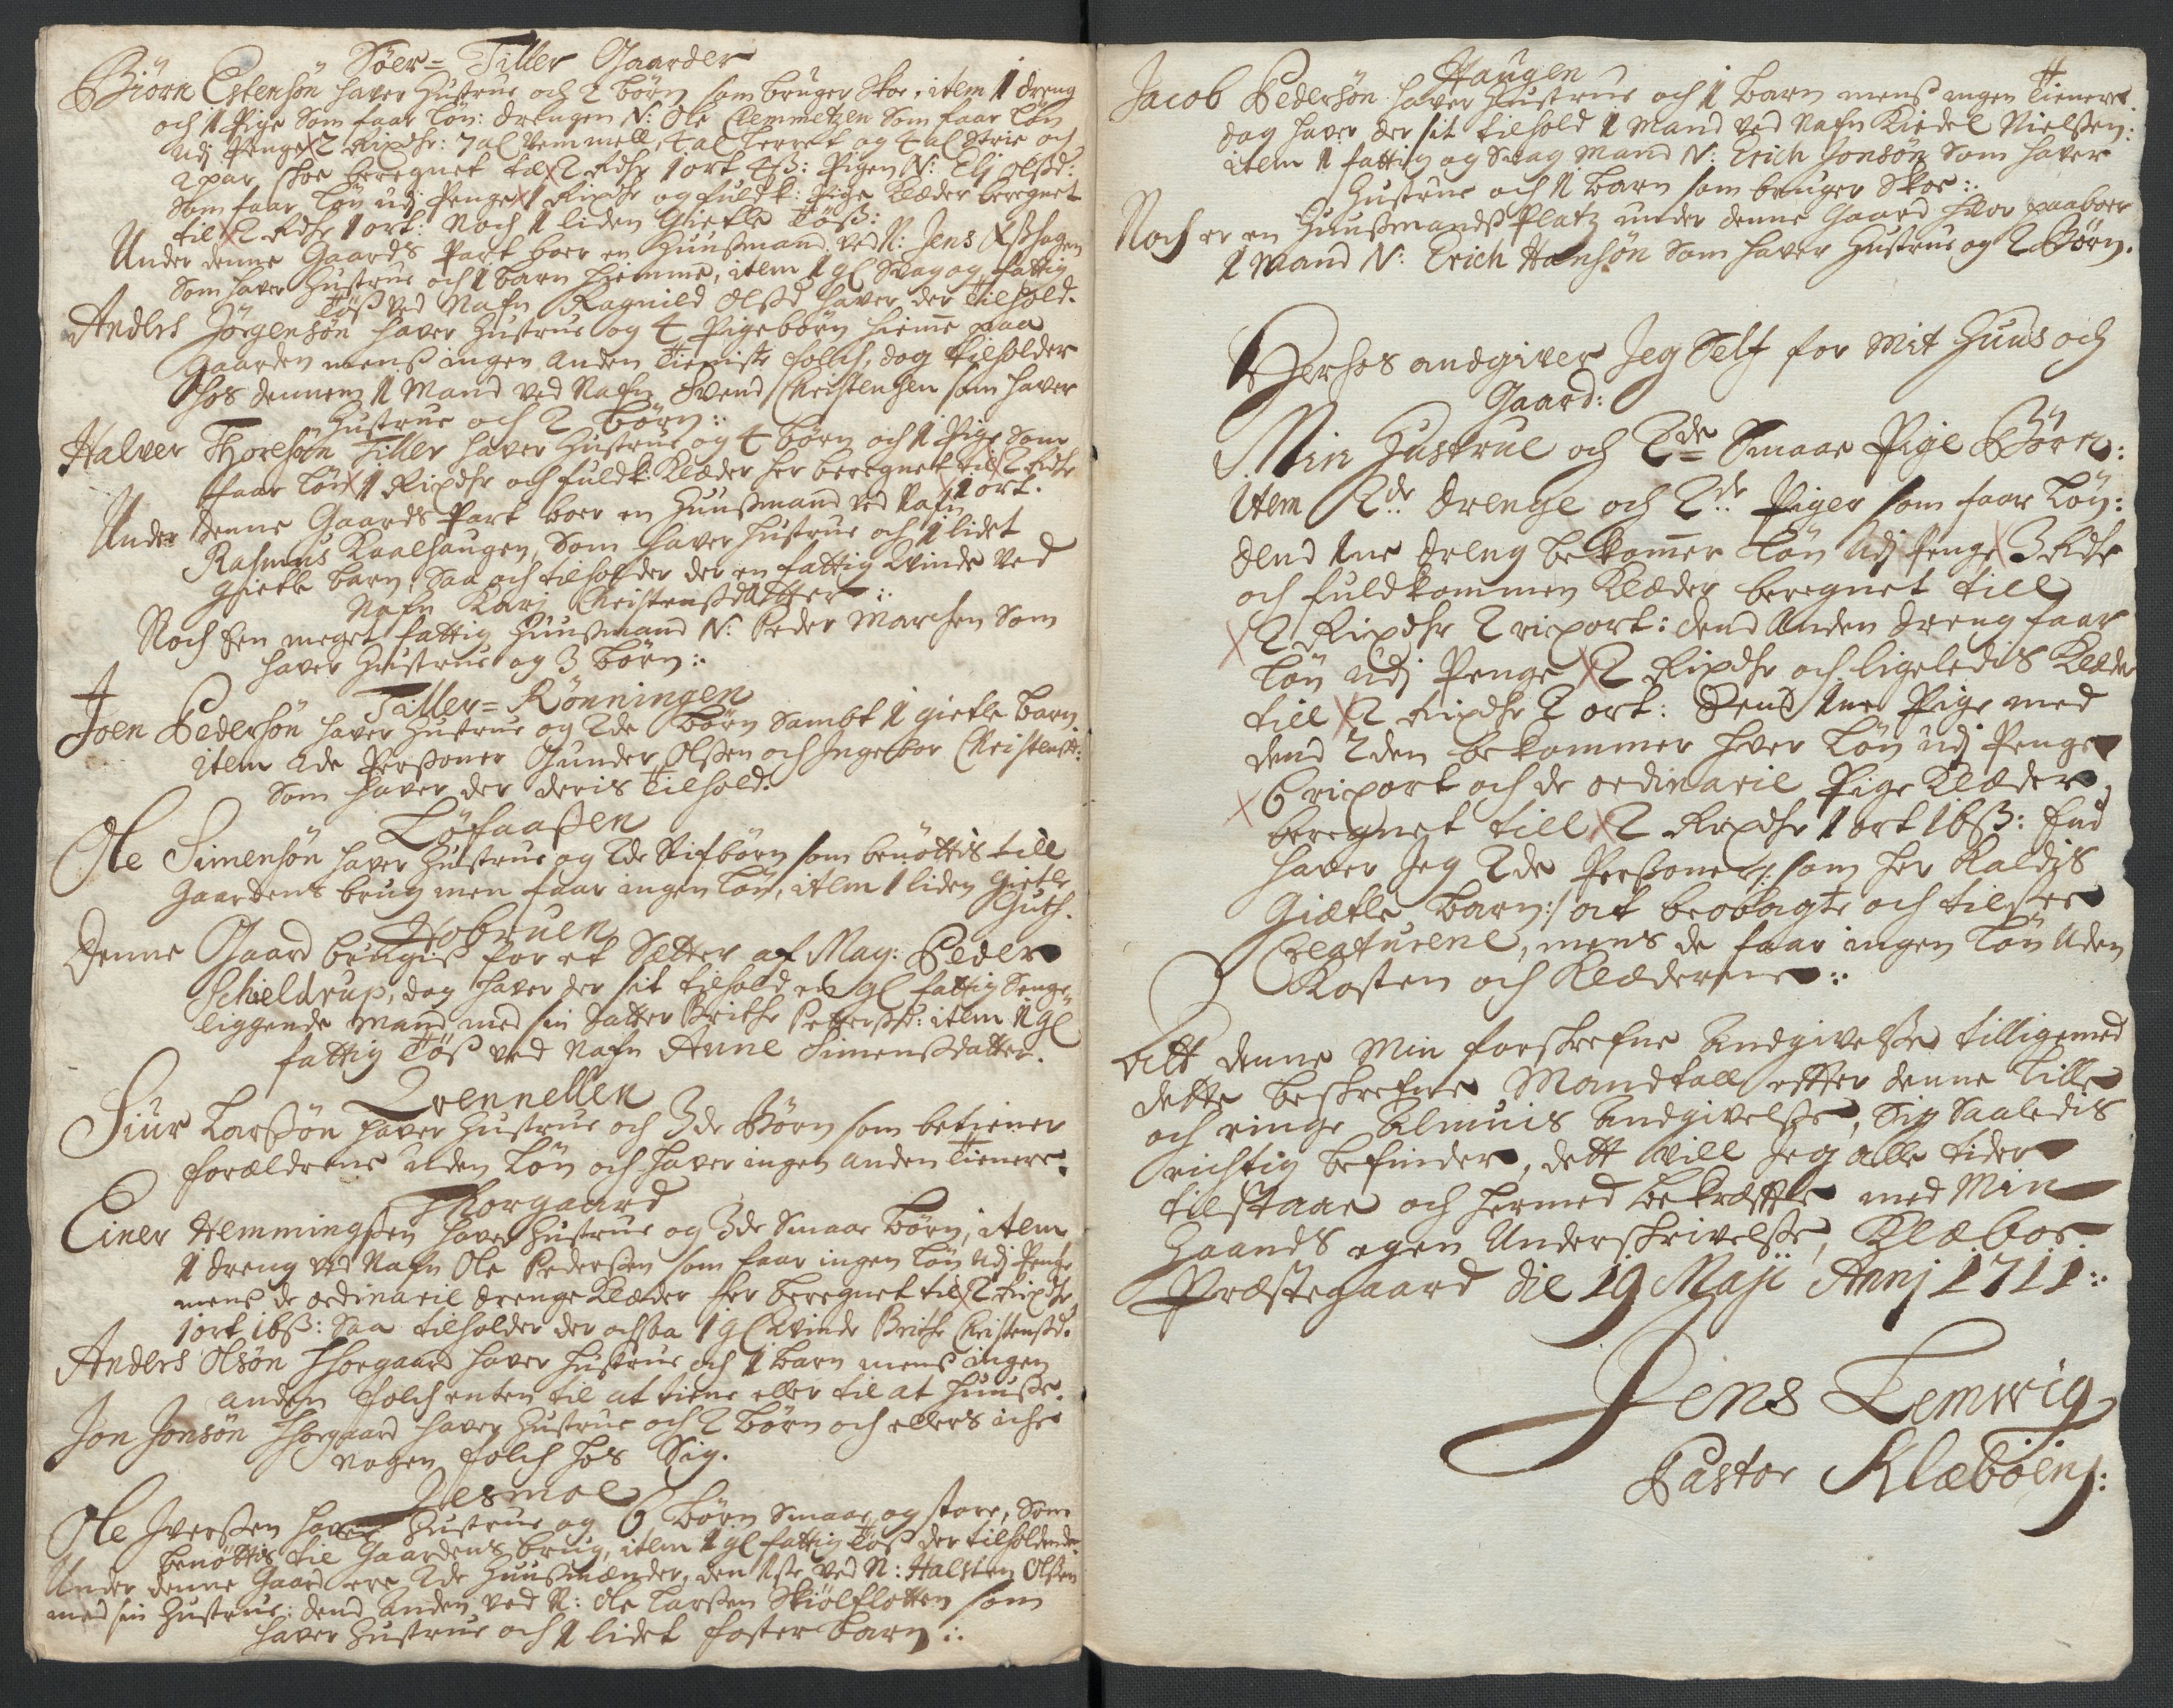 Søer= Tiller Gaarder
Biörn Estensön haver Hustrue och 2 börn som bruger skoe, item 1 dreng
och 1 Pige som faar Løn: drengen N: Ole Clemmetzen som faar Løn
udj Penge 2 Rixdlr: 7 al Vommell, 4 al lerret og 4 al Strie och
2 par skoe beregnet til 2 Rdlr 1 ort 4ß: Pigen N: Elj Olsd:
som faar Løn udj Penge 1 Rixdlr og fuldk: Pige Klæder beregnet
til 2 Rdlr 1 ort: Noch 1 liden Gietle Töß:
Under denne Gaards Part boer en Huußmand ved N: Jens
som haver Hustrue och 1 barn hiemme, item 1 gl Svag og fattig
Töß ved Nafn Ragnild Olsd haver der Tilhold.
Anders Jörgensön haver Hustrue og 4 Pigebörn hieme paa
Gaarden menß ingen anden Tieniste folch, dog tilholder
hos dennem 1 Mand ved Nafn Svend Christensen som haver
Hustrue och 2 börn:
Halver Thoresön Tiller haver Hustrue og 4 börn och 1 Pige som
faar Løn 1 Rixdlr och fuldk: Klæder her beregnet til 2 Rdlr
1 ort.
Under denne Gaards Part boer en Huußmand ved Nafn
Rasmus Kaalhaugen, som haver Hustrue och 1 lidet
Gietle barn, Saa och tilholder der en fattig Kvinde ved
Nafn Karj Christensdatter:
Noch een meget fattig Huußmand N: Peder Marchen som
haver Hustrue og 3 börn:
Tiller= Rönningen
Joen Pedersön haver Hustrue og 2de Börn sambt 1 gietle barn
item 2de Personer Gunder Olßen och Ingebor Christensd:
som haver der deris Tilhold.
Löfaaßen
Ole Simensön haver Hustrue og 2de Stifbörn som benöttis till
Gaardens brug men faar ingen Løn, item 1 liden Gietle
Guth.
Hobruen
Denne Gaard brugis for et Sætter af Mag: Peder
Schieldrup, dog haver der sit tilhold en gl fattig Senge
liggende Mand med sin Datter Brithe Pettersd: item 1 gl
fattig Töß ved Nafn Anne Simensdatter.
Qvennellen
Siur Larßön haver Hustrue och 3de Börn som betiener
forældrene uden Løn och haver ingen anden Tienere.
Thorgaard
Einer Hemmingßen haver Hustrue og 3de Smaae Börn, item
1 dreng ved Nafn Ole Pederßen som faar ingen Løn udj Penge
mens de ordinarie drenge Klæder her beregnet til 2 Rixdlr
1 ort 16ß: Saa tilholder der ochsaa 1 gl Kvinde Brithe Christensd.
Anders Olsön Thorgaard haver Hustrue och 1 barn menß ingen
anden folch enten til at tiene eller til at Huuße.
Jon Jonsön Thorgaard haver Hustrue och 2 börn och ellers iche
nogen folch hos Sig.
Desmoe
Ole Iverßen haver Hustrue og 6 börn Smaae og store, som
benöttis til Gaardens brug, item 1 gl fattig Töß der tilholdende.
Under denne Gaard ere 2de Huusmænder, den 1ste ved N: Halsten Olßen
med sin Hustrue: dend anden ved N: Ole Larßen Skiölflotten som
haver Hustrue och 1 lidet foster barn:
Haugen
Jacob Pedersön haver Hustrue och 1 barn menß ingen Tienere
dog haver der sit tilhold 1 Mand ved Nafn Kiedel Nielßen:
item 1 fattig og Svag Mand N: Erich Jonsön som haver
Hustrue och 1 barn som bruger Skoe:
Noch er en Huußmands Platz under denne Gaard hvor paaboer
1 Mand N: Erich Hansön som haver Hustrue og 2 Börn.
Herhos andgiver Jeg Self for mit Huus och
Gaard:
Min Hustrue och 2de Smaae Pige Börn:
Item 2de Drenge och 2de Piger som faar Løn:
dend 1ne dreng bekommer Løn udj Penge 3 Rdlr
och fuldkommen Klæder beregnet till
2 Rixdlr 2 rixort: dend Anden dreng faar
Løn udj Penge 2 Rixdlr och ligeledis Klæder
till 2 Rixdlr 2 ort: Dend 1ne Pige med
dend 2den bekommer hver Løn udj Penge
6 rixort och de ordinarie Pige Klæder
beregnet till 2 Rixdlr 1 ort 16ß: End
haver Jeg 2de Personer /: som her Kaldis
Giætle barn :/ at beobagte och tilsee
Creaturene, mens de faar ingen Løn Uden
Kosten och Klæderne:
Att denne Min forskrefne Andgivelße tilligemed
dette beskrefne Mandtall efter denne Lille
och ringe Almuis Andgivelße, Sig Saaledis
rigtig befinder, dett vill Jeg alle tider
tilstaae och hermed bekræffte med Min
Haands egen Underskrivelße, Klæboe
Præstegaard die 19 Maji Annj 1711:
Jens Lemwig
Pastor Klæböens: